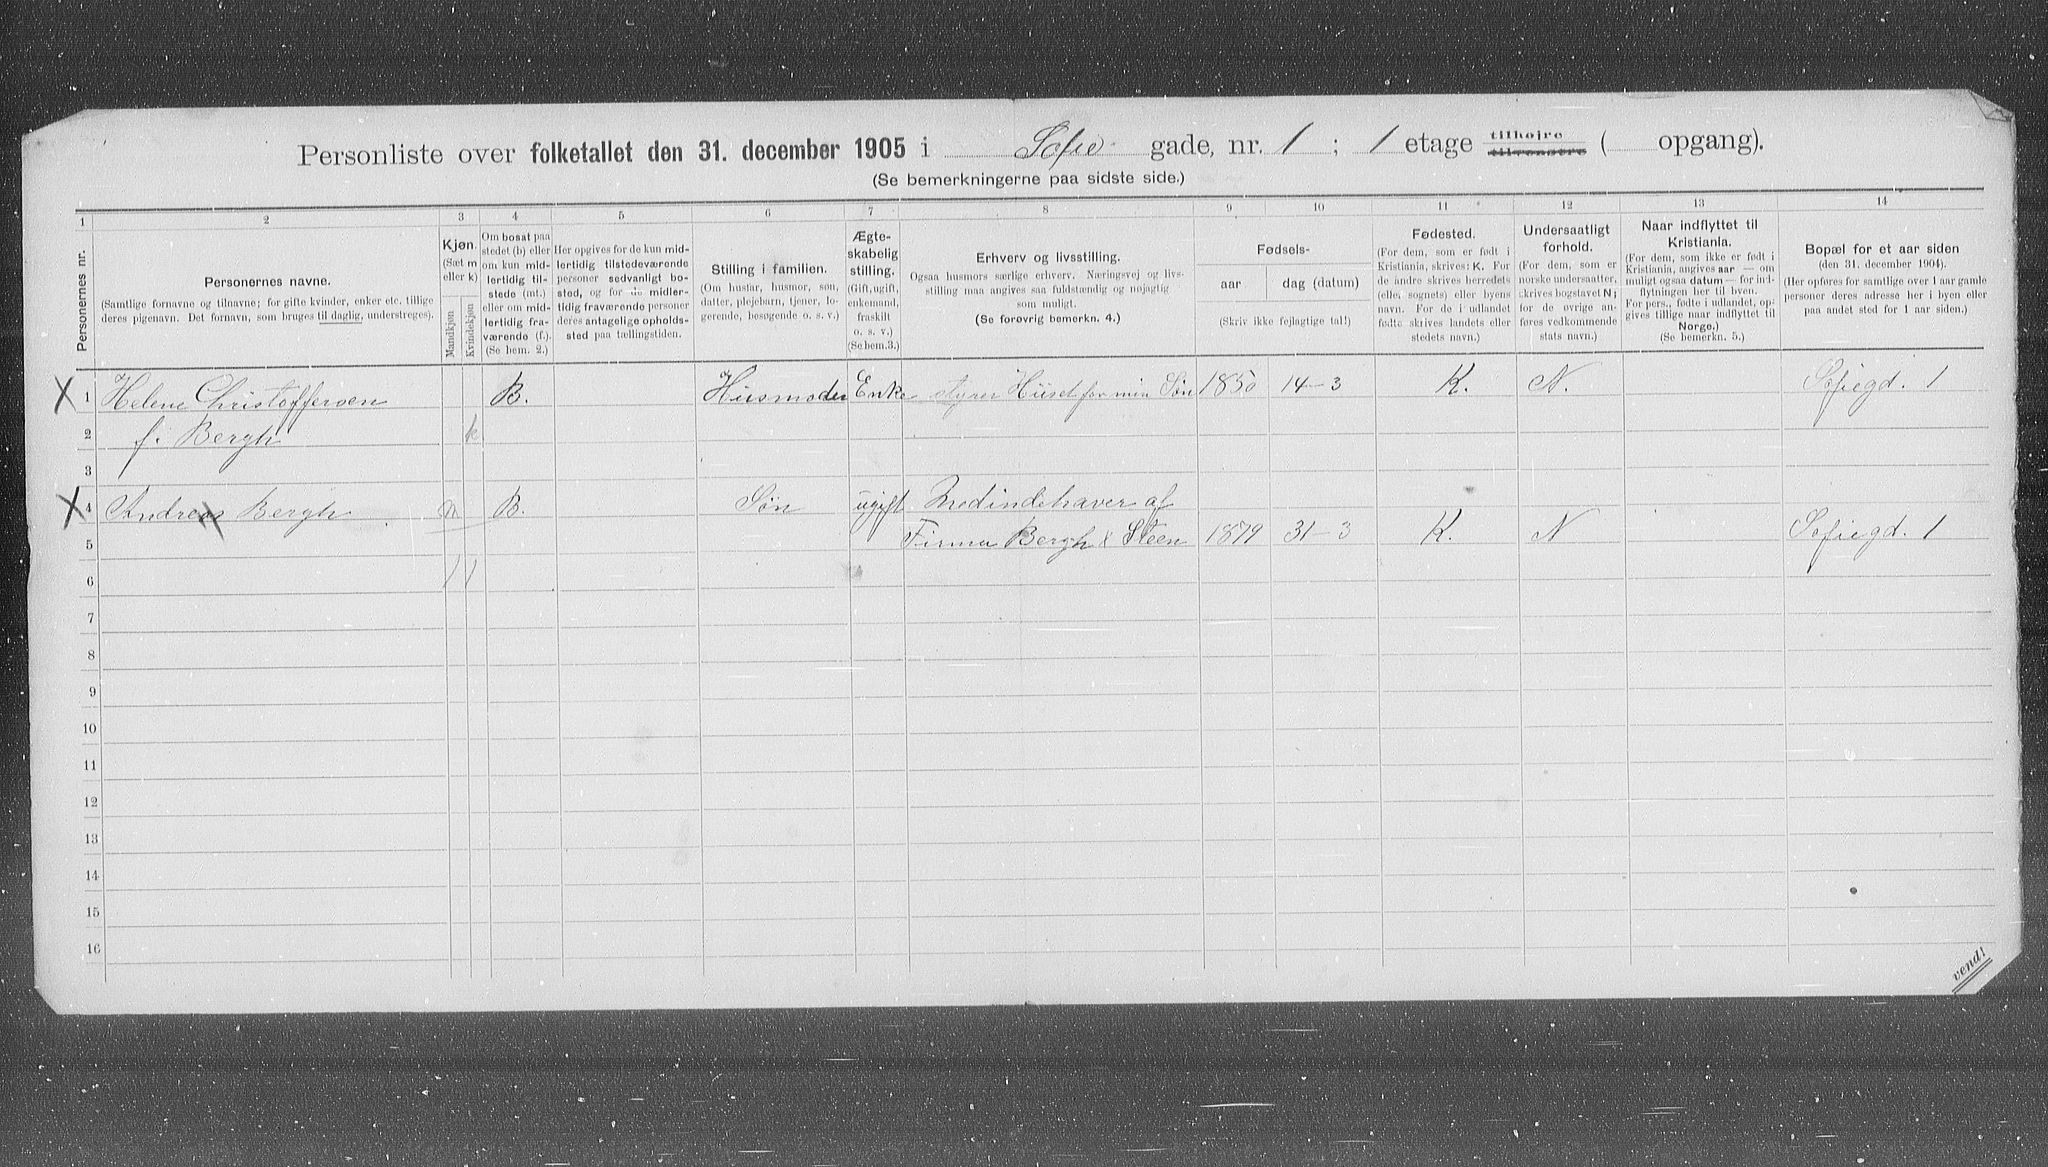 Personliste over folketallet den 31. december 1905 i Sofie gade, nr. 1 ; 1 etage tilhøjre tilvenstre ( opgang).
(Se bemerkningerne paa sidste side.)
1 2 3 4 5 6 7 8 9 10 11 12 13 14
Personernes nr.
Personernes navne.
(Samtlige fornavne og tilnavne; for gifte kvinder, enker etc. tillige
deres pigenavn. Det fornavn, som bruges til daglig, understreges).
Kjøn.
(Sæt m
eller k)
Mandkjøn
Kvindekjøn
Om bosat paa
stedet (b) eller
om kun mid-
lertidig til-
stede (mt.)
eller om mid-
lertidig fra-
værende (f.).
(Se bem. 2.)
Her opgives for de kun mid-
lertidig tilstedeværende
personer sedvanlig bo-
sted, og for de midler-
tidig fraværende personer
deres antagelige opholds-
sted paa tællingstiden.
Stilling i familien.
(Om husfar, husmor, søn,
datter, plejebarn, tjener, lo-
gerende, besøgende o. s. v.)
Ægte-
skabelig
stilling.
(Gift, ugift,
enkemand,
fraskilt
o. s. v.)
(Se bem. 3.)
Erhverv og livsstilling.
Ogsaa husmors særlige erhverv. Næringsvej og livs-
stilling maa angives saa fuldstændig og nøjagtig
som muligt.
(Se forøvrig bemerkn. 4.)
Fødsels-
aar dag (datum)
(Skriv ikke fejlagtige tal!)
Fødested.
(For dem, som er født i
Kristiania, skrives: K. For
de andre skrives herredets
(eller sognets) eller byens
navn. For de i udlandet
fødte skrives landets eller
stedets navn.)
Undersaatligt
forhold.
(For dem, som er
norske undersaatter,
skrives bogstavet N;
for de øvrige an-
føres vedkommende
stats navn.)
Naar indflyttet til
Kristiania.
(For dem, som ikke er født i
Kristiania, angives aar — om
muligt ogsaa datum — for ind-
flytningen her til byen.
For pers., fødte i udlandet, op-
gives tillige naar indflyttet til
Norge.)
(Se bemerkn. 5.)
Bopæl for et aar siden
(den 31. december 1904).
(Her opføres for samtlige over 1 aar gamle
personer deres adresse her i byen eller
paa andet sted for 1 aar siden.)
X 1 Helene Christoffersen B. Husmoder Enke styrer Huset for min Søn 1850 14-3 K. N. Sofiegd. 1
2 f. Bergh k
3
X 4 Andreas Bergh m B. Søn ugift Medindehaver af
5 Firma Bergh & Steen 1879 31-3 K. N Sofiegd. 1
6 1 1
7
8
9
10
11
12
13
14
15
16
vend!